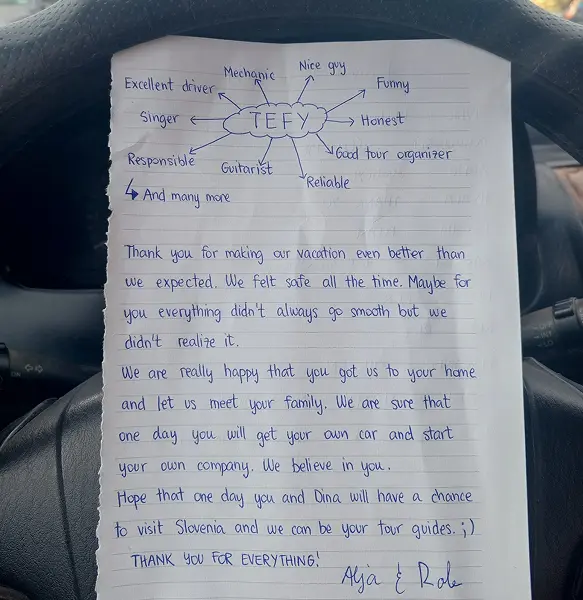 Mechanic
Nice guy
Excellent driver
Funny
Singer
TEFY
Honest
Responsible
Guitarist
Good tour organizer
Reliable
↳ And many more
Thank you for making our vacation even better than
we expected. We felt safe all the time. Maybe for
you everything didn't always go smooth but we
didn't realize it.
We are really happy that you got us to your home
and let us meet your family. We are sure that
one day you will get your own car and start
your own company. We believe in you.
Hope that one day you and Dina will have a chance
to visit Slovenia and we can be your tour guides. ;)
THANK YOU FOR EVERYTHING!
Alja &